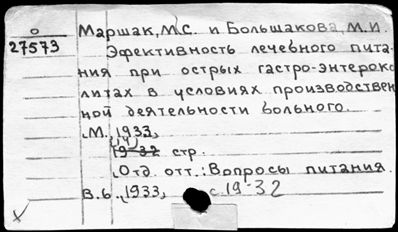 о
27573
Маршак, М.С. и Большакова, М.И.
Эфективность лечебного пита-
ния при острых гастро-энтероко
литах в условиях производствен
ной деятельности больного.
М., 1933,
(14)
19-32 стр.
Отд. отт.: Вопросы питания.
В.6., 1933, с. 19-32